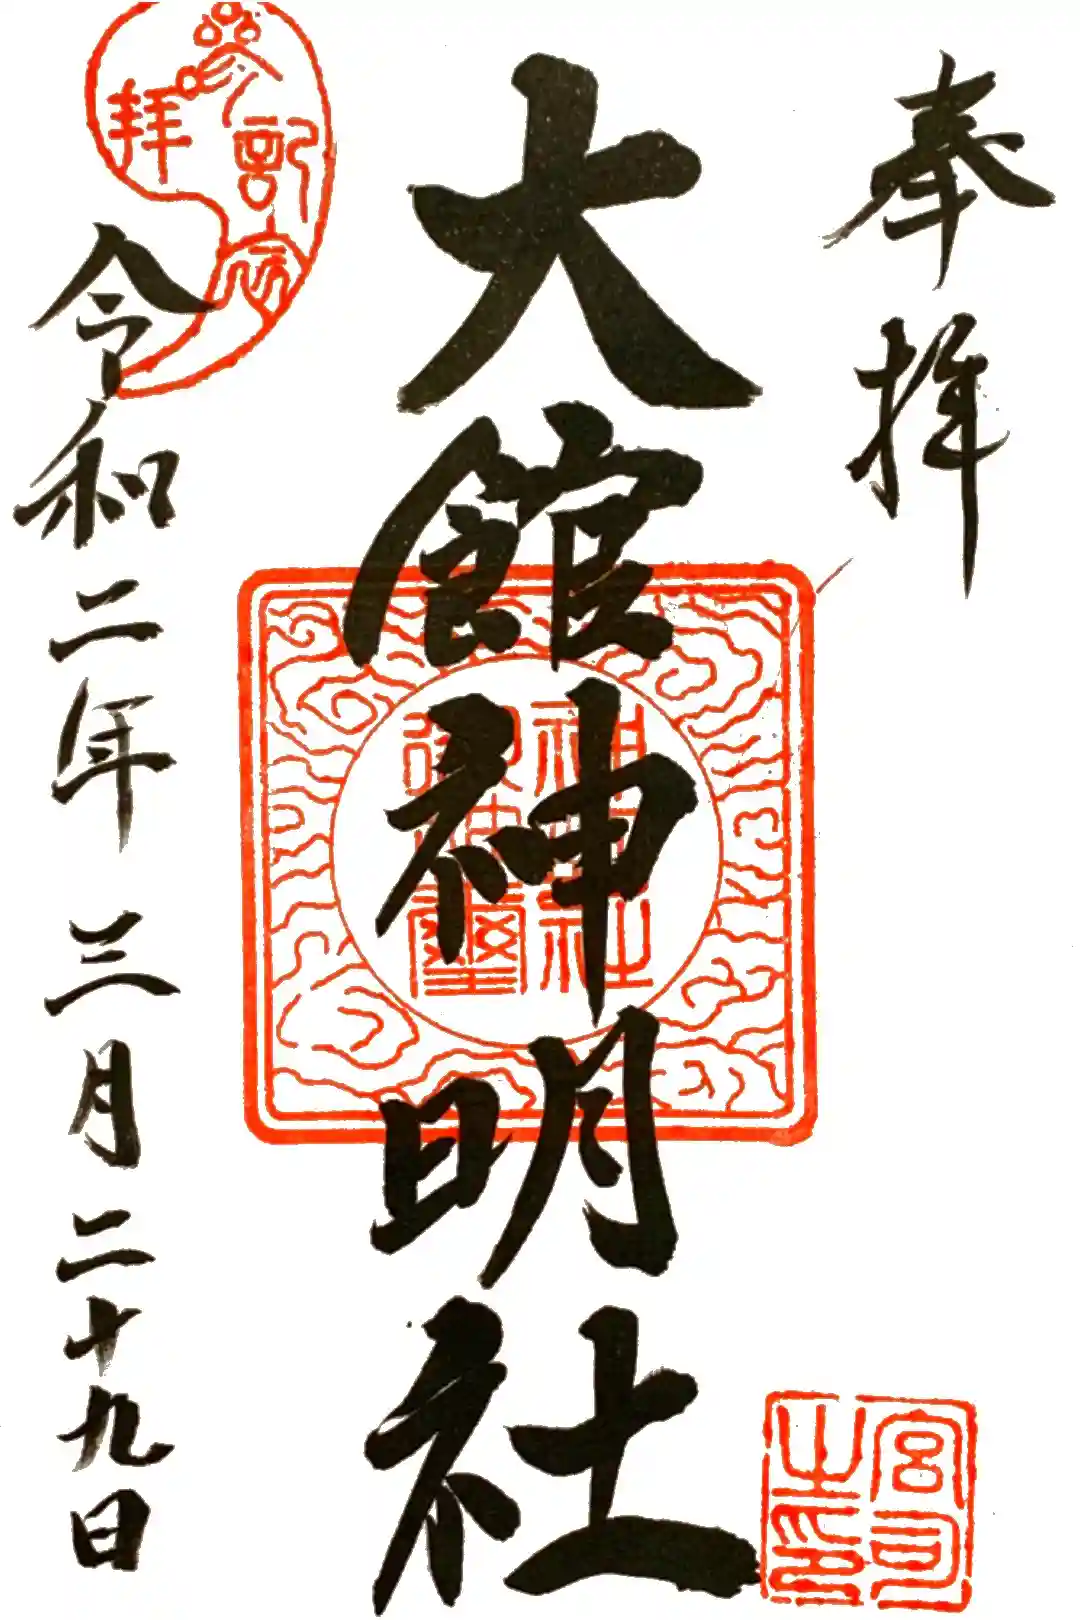 奉拝
大館神明社
令和二年三月二十九日
参拝記念
宮司之印